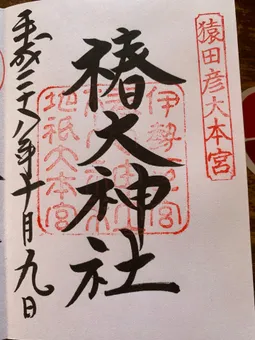 猿田彦大本宮
椿大神社
伊勢一宮
地祇大本宮
平成二十八年十月九日